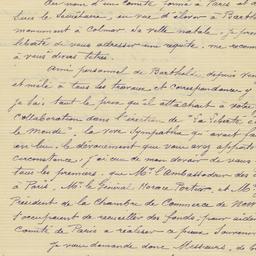 au nom d'un comité formé à Paris et d
suis le Secrétaire, en vue d'élever à Barthol
monument à Colmar sa ville natale, je pren
liberté de vous adresser une requête, me recom
à vous divers titres.
Ami personnel de Bartholdi, depuis
et mêlé à tous les travaux et correspondances
je sais tout le prix qu'il attachait à votre
collaboration dans l'érection de "La liberté é
le Monde", la vive sympathie qu'avait fai
en lui, le dévouement que vous avez apporté
circonstance, j'ai cru de mon devoir de vous
tous les premiers, que Mr. l'Ambassadeur des
à Paris, Mr. le Général Horace Porter, et Mr
Président de la Chambre de Commerce de New
s'occupent de recueillir des fonds, pour aider
Comité de Paris à réaliser ce pieux Souvenir
Je vous demande donc Messieurs, de